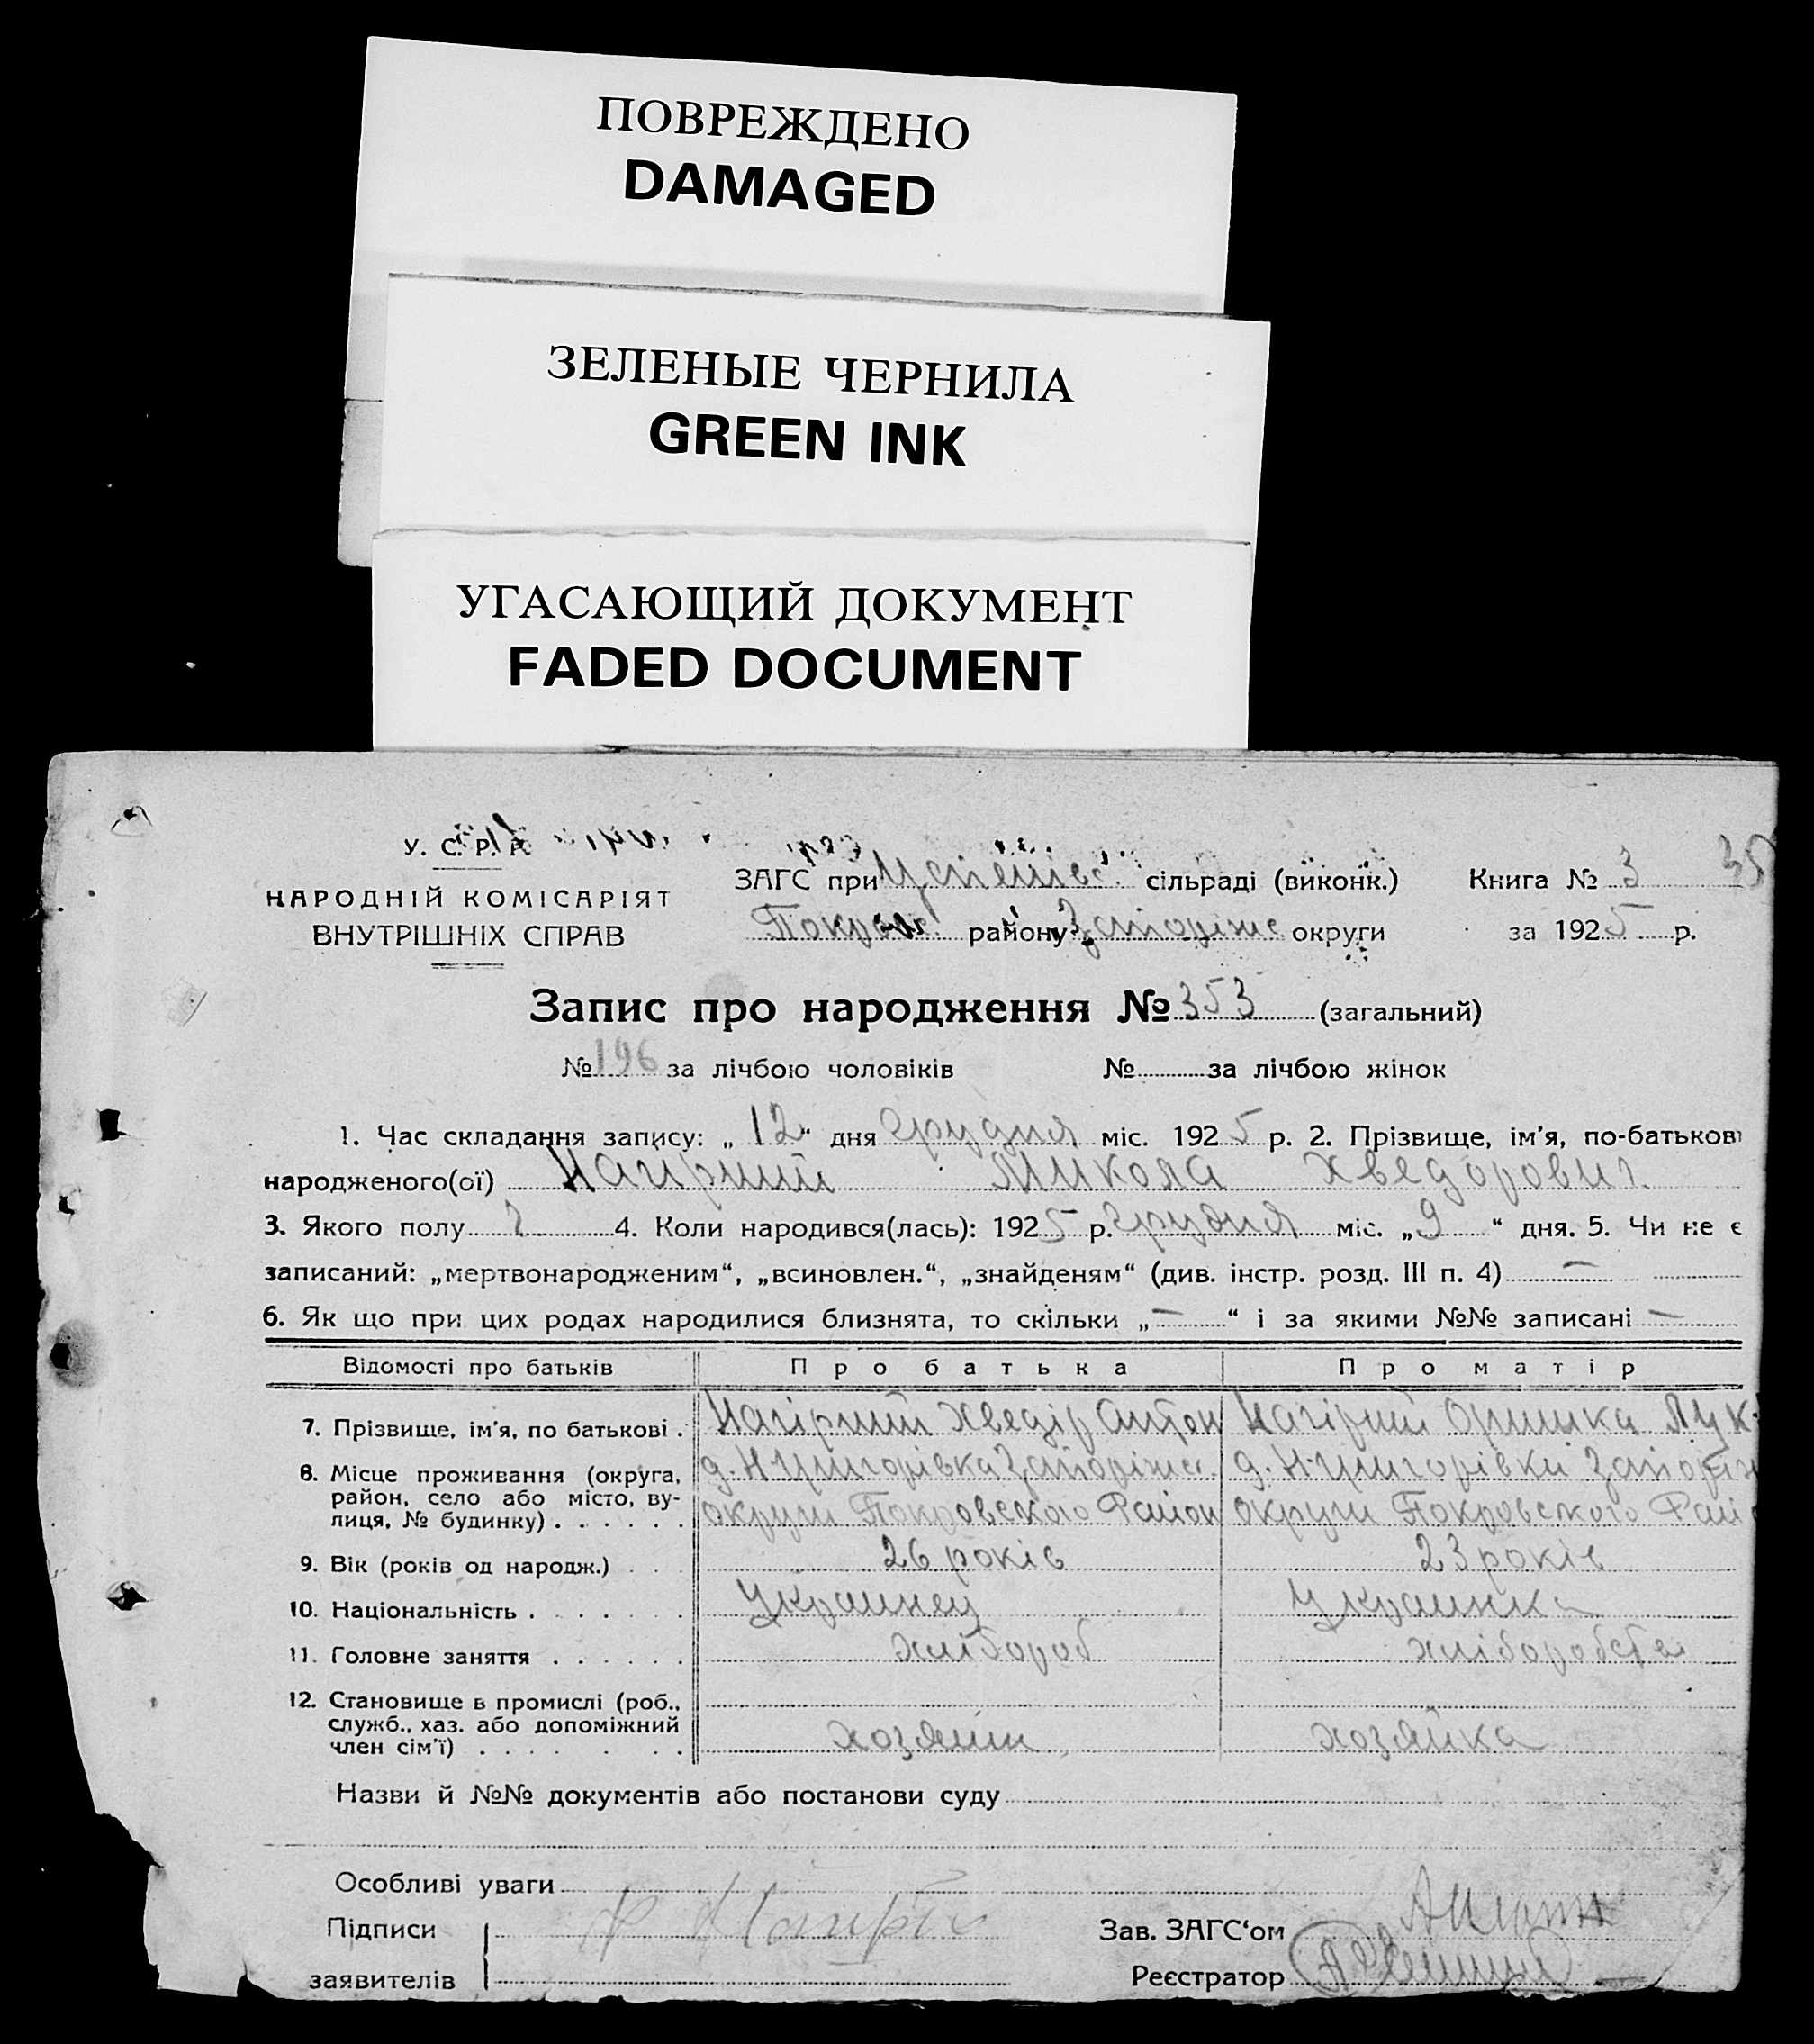 ПОВРЕЖДЕНО
DAMAGED
ЗЕЛЕНЫЕ ЧЕРНИЛА
GREEN INK
УГАСАЮЩИЙ ДОКУМЕНТ
FADED DOCUMENT
У. С. Р. Р.
НАРОДНІЙ КОМІСАРІЯТ
ВНУТРІШНІХ СПРАВ
ЗАГС при Успенівс. сільраді (виконк.) Книга № 3 35
Покров. району Запоріже округи за 1925 р.
Запис про народження № 353 (загальний)
№ 196 за лічбою чоловіків № за лічбою жінок
1. Час складання запису: „ 12 “ дня Грудня міс. 1925 р. 2. Прізвище, ім’я, по-батькові
народженого(ої) Нагірний Микола Хведорович
3. Якого полу ч 4. Коли народився(лась): 1925 р. Грудня міс. „ 9 “ дня. 5. Чи не є
записаний: „мертвонародженим“, „всиновлен.“, „знайденям“ (див. інстр. розд. III п. 4) —
6. Як що при цих родах народилися близнята, то скільки „ — “ і за якими №№ записані —
Відомості про батьків Про батька Про матір
7. Прізвище, ім’я, по батькові . Нагірний Хведір Антон Нагірний Оришка Лук
8. Місце проживання (округа, район, село або місто, вулиця, № будинку) . . . . . .
д. Н-Григорівка Запоріже. округи Покровского Район
д. Н-Григорівки Запоріж округи Покровского Райо
9. Вік (років од народж.) . . . 26 років 23 років
10. Національність . . . . . . . Украинец Украинка
11. Головне заняття . . . . . . хлібороб хліборобство
12. Становище в промислі (роб., служб., хаз. або допоміжний член сім’ї) . . . . . . .
хозяин хозяйка
Назви й №№ документів або постанови суду
Особливі уваги
Підписи
заявителів
Зав. ЗАГС‘ом
Реєстратор